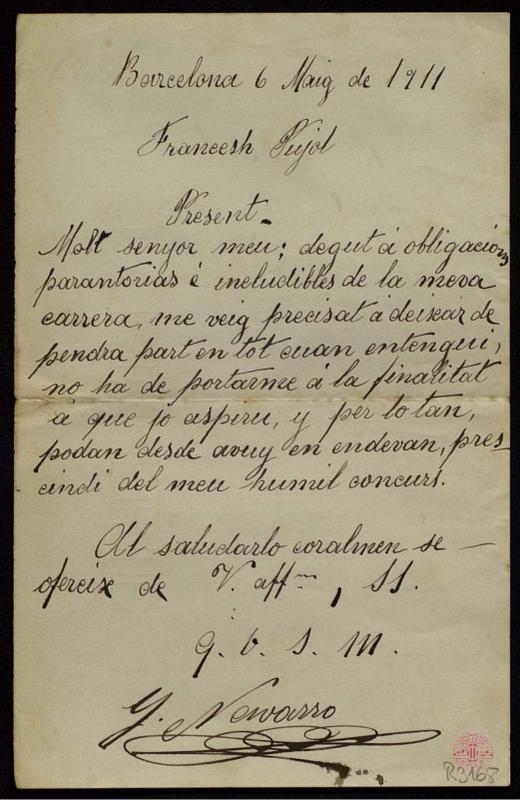 Barcelona 6 Maig de 1911
Francesh Pujol
Present.
Molt senyor meu; degut á obligacions
parantorias é ineludibles de la meva
carrera, me veig precisat á deixar de
pendra part en tot cuan entengui,
no ha de portarme á la finalitat
á que jo aspiru, y per lo tan,
podan desde avuy en endevan, pres-
cindi del meu humil concurs.
Al saludarlo coralmen se
ofereix de V. affm, SS.
q. b. s. m.
G. Navarro
R3168